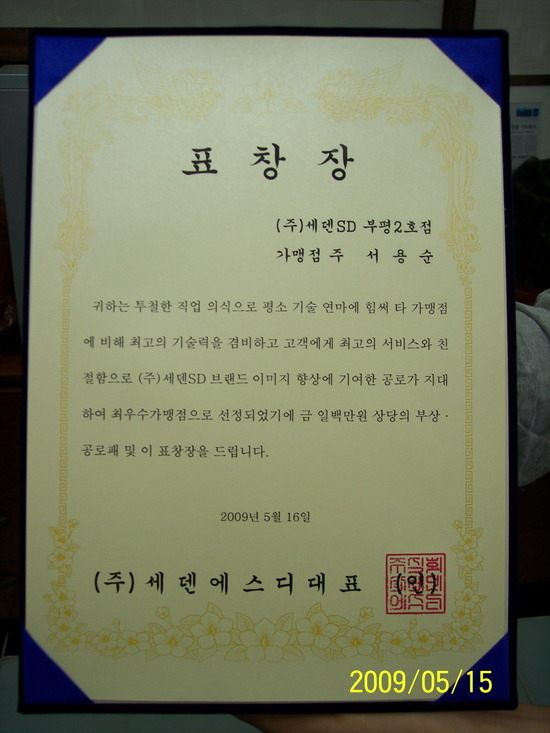 표 창 장
(주)세덴SD 부평2호점
가맹점주 서용순
귀하는 투철한 직업 의식으로 평소 기술 연마에 힘써 타 가맹점
에 비해 최고의 기술력을 겸비하고 고객에게 최고의 서비스와 친
절함으로 (주)세덴SD 브랜드 이미지 향상에 기여한 공로가 지대
하여 최우수가맹점으로 선정되었기에 금 일백만원 상당의 부상·
공로패 및 이 표창장을 드립니다.
2009년 5월 16일
(주)세덴에스디대표 (인)
2009/05/15